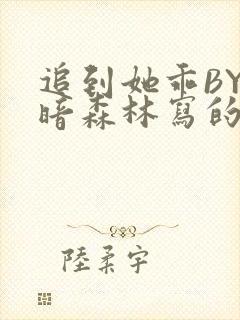 追到她乖BY
暗森林寫的
陸柔宇